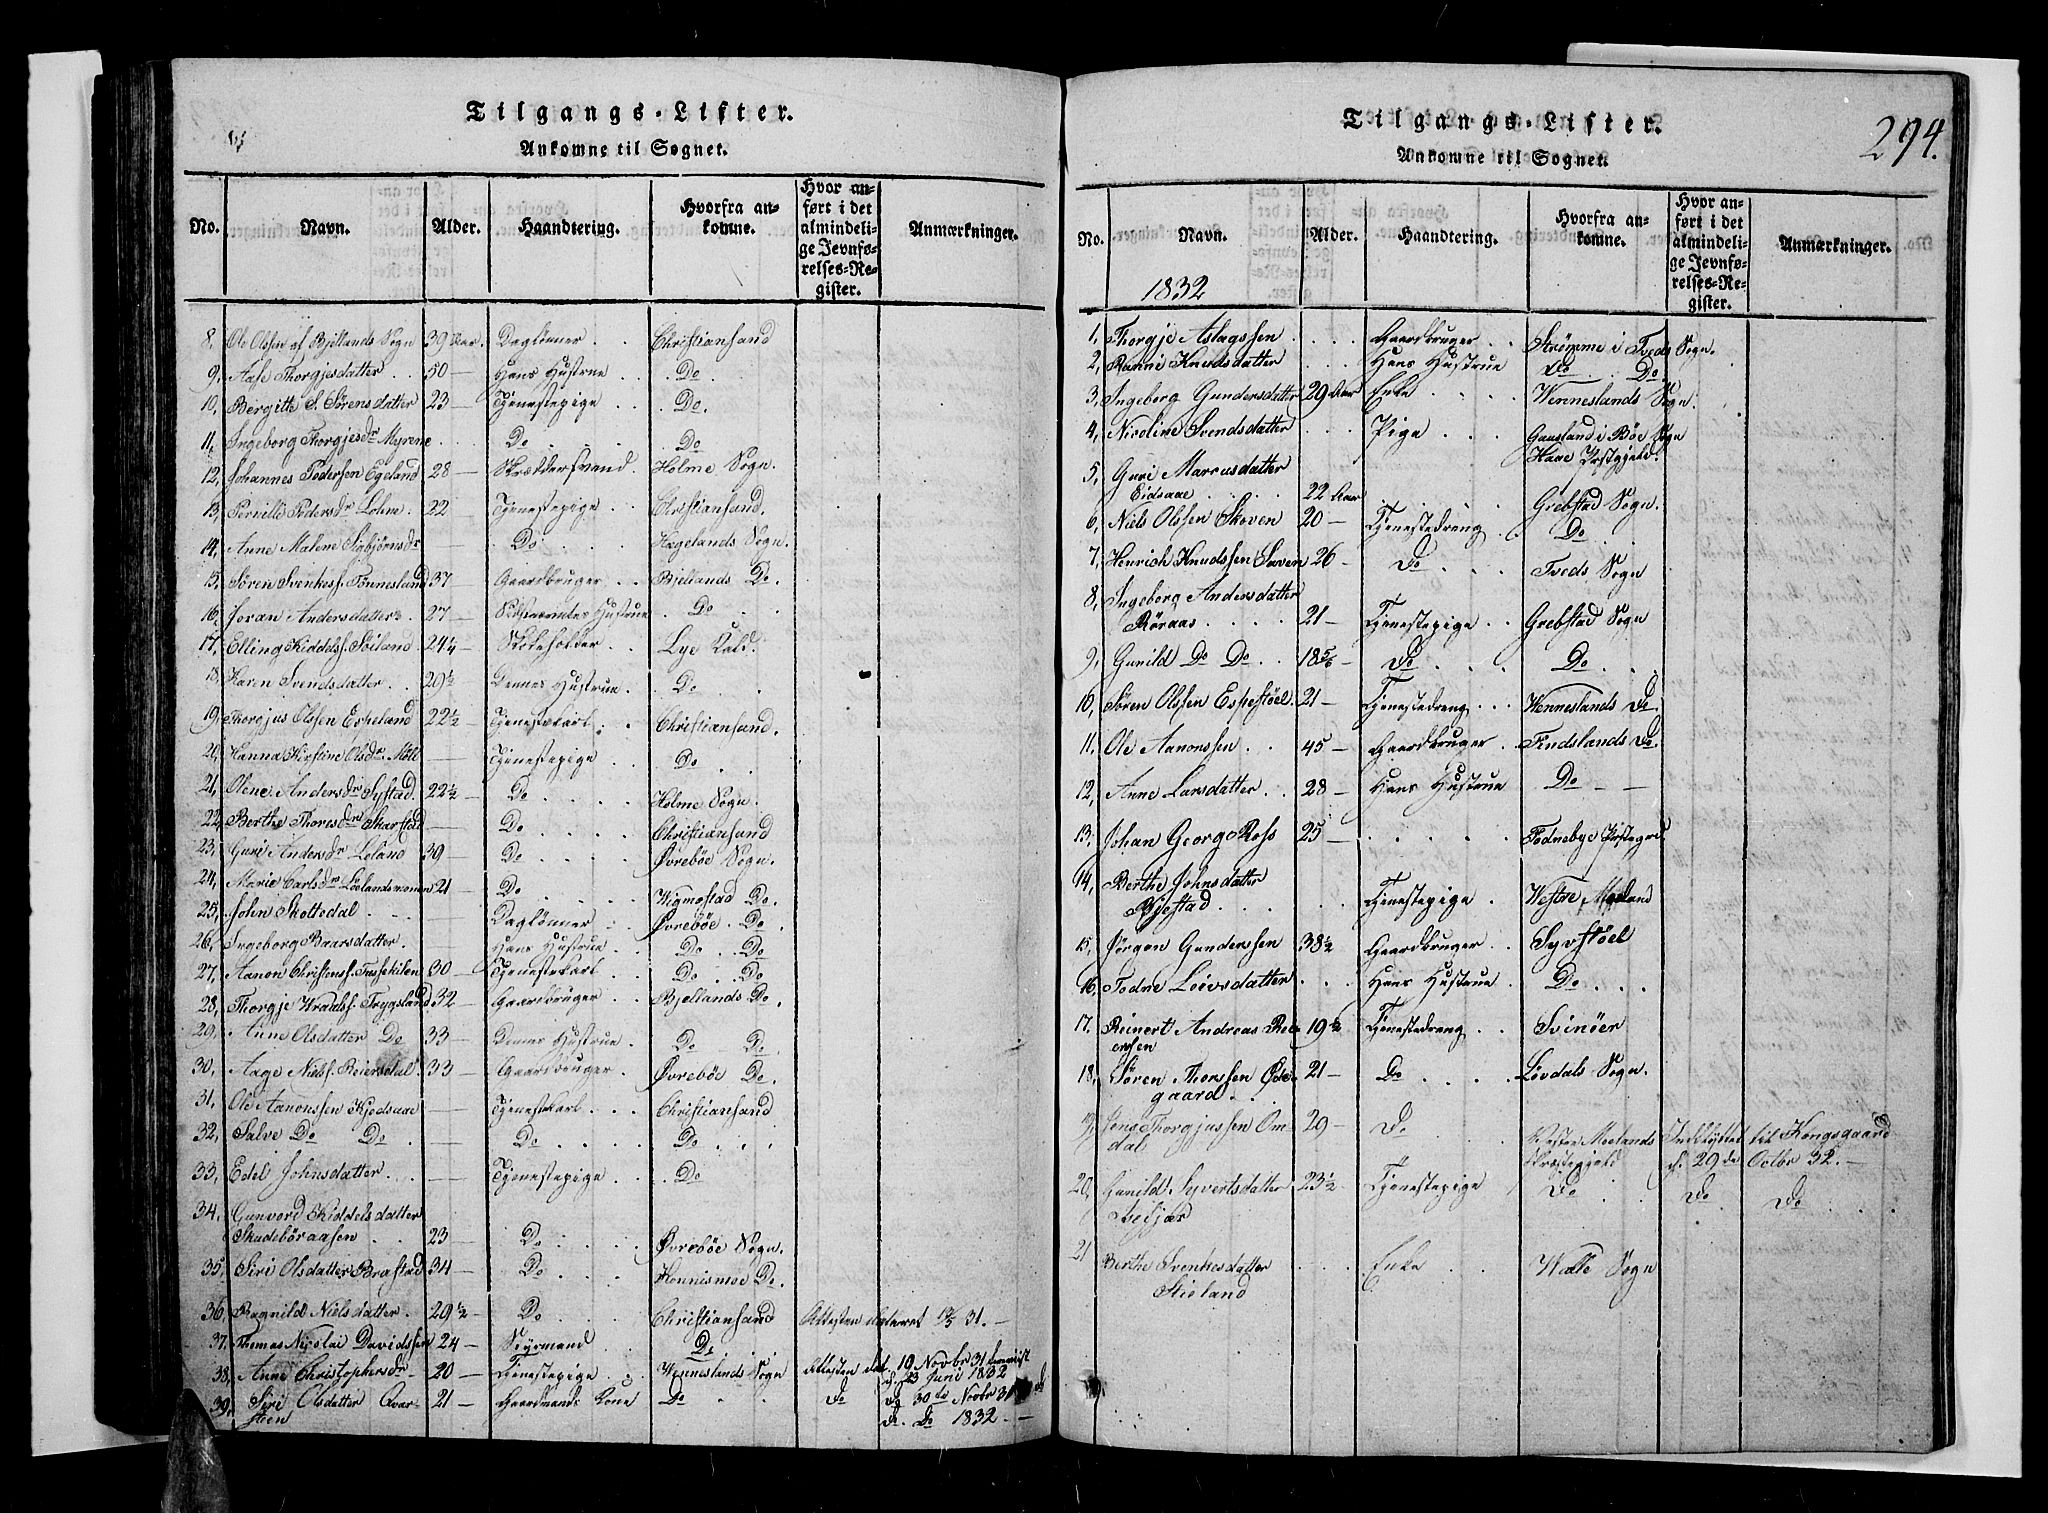 Tilgangs-Lister.
Ankomne til Sognet.
No. Navn. Alder. Haandtering. Hvorfra ankomne. Hvor anført i det almindelige Jevnførelses-Register. Anmærkninger.
8, Ole Olsen af Bjellands Sogn 39 Aar. Daglønner Christiansand
9, Aase Thorgjesdatter 50 — Hans Hustrue Do
10, Bergitte S. Sørensdatter 23 — Tjenestepige Do.
11, Ingeborg Thorgjesdr Myrene Do Do
12, Johannes Pedersen Egeland 28 — Skræddersvend Holme Sogn.
13, Pernille Pedersdr Lohne 22 Tjenestepige Christiansand.
14, Anne Malene Sigbjørnsdr — Do Hægelands Sogn.
15, Søren Svenkess. Tønnesland 37 Gaardbruger Bjellands Do.
16, Joran Andersdatter 27 — Hustrue Do
17, Elling Kiddels. Søiland 24¼ Lye
18, Karen Svendsdatter 29½ Dennes Hustrue Do
19, Thorgjus Olssen Espeland 22½ Tjenestekarl Christiansand.
20, Hanna Kirstine Olsdr. — Tjenestepige Do
21, Olene Andersdr Systad. 22½ — Do Holme Sogn.
22, Berthe Thoresdr Skarstad — Do Christiansand
23, Guri Andersdr Leland 39 — Do Øvrebøe Sogn.
24, Marie Carlsdr Løelandsmonen 21 Do Wigmostad Do.
25, John Skottedal Daglønner Øvrebøe Do
26, Ingeborg Baarsdatter. Hans Hustrue Do Do
27, Aanon Christenss. 30 — Tjenestekarl Do Do
28, Thorgje Trygsland 32 Gaardbruger Bjellands Do.
29, Anne Olsdatter Do 33 — Dennes Hustrue Do Do
30, Aage Niels. Reiersdal 33 — Gaardbruger Øvrebøe Do
31, Ole Aanonssen Kjedsaae — Tjenestekarl Christiansand
32, Salve Do Do — Do Do
33, Edel Johnsdatter — Tjenestepige Do
34, Gunvord Kiddelsdatter
Studebøraasen 23 — Do Øvrebøe Sogn.
35, Siri Olsdatter Brastad 34 — Do Do.
36, Ragnild Nielsdatter. 29½ — Do Christiansand Attesten dateret 31. —
37, Thomas Nicolai Davidsen 24 — Styrmand Do
38, Anne Christophersdr 20 — Tjenestepige Wenneslands Sogn Attesten dat. 19 Novbr 31
d. 23 Juni 1832
39, Siri Olsdatter 21 — Gaardmands Kone Do Do 30te Novbr 31
Do 1832. —
Tilgangs-Lister.
294.
Ankomne til Sognet.
No. Navn. Alder. Haandtering. Hvorfra ankomne. Hvor anført i det almindelige Jevnførelses-Register. Anmærkninger.
1832
1, Thorgje Aslagssen Gaardbruger Strømme i Tveds Sogn.
2, Ranni Knudsdatter Hans Hustrue Do Do
3, Ingeborg Gundersdatter 29 Aar Enke Wenneslands Sogn.
4, Nicoline Svendsdatter Pige Gausland i Bøe Sogn
Haae Præstgjeld.
5, Guri Marcusdatter
Eidsaae 22 Aar Grebstad Sogn.
6, Niels Olssen Skoven 20 — Tjenestedreng Do
7, Henrich Knudssen Saven 26 — Do Tveds Sogn
8, Ingeberg Andersdatter
Røraas 21 — Tjenestepige Grebstad Sogn
9, Gunild Do Do 18 5/6 — Do Do
10, Søren Olssen Espestøel 21 — Tjenestedreng Wenneslands Do.
11, Ole Aanonssen 45 — Gaardbruger Findslands Do.
12, Anne Larsdatter 28 — Hans Hustrue Do — —
13, Johan Georg Ross 25 Fodnebye Præstegield
14, Berthe Johnsdatter
Bjestad Tjenestepige Westre Moland
15, Jørgen Gunderssen 38½ — Gaardbruger Syvstøel
16, Todne Leivsdatter Hans Hustrue Do
17. Reinert Andreas Rei- 19½ — Tjenestedreng Svinøer
ersen
18, Søren Thorssen Øde- 21 — Do Løvdals Sogn.
gaard
19, Jens Thorgjussen Om- 29 — Do Vester Moelands Indflyttet til Kongsgaard
dal Præstegjeld d. 29 de Octbr 32. —
20, Gunild Syvertsdatter 23½ — Tjenestepige Do Do Do
21 Berthe Svenkesdatter Enke Walle Sogn
Stieland